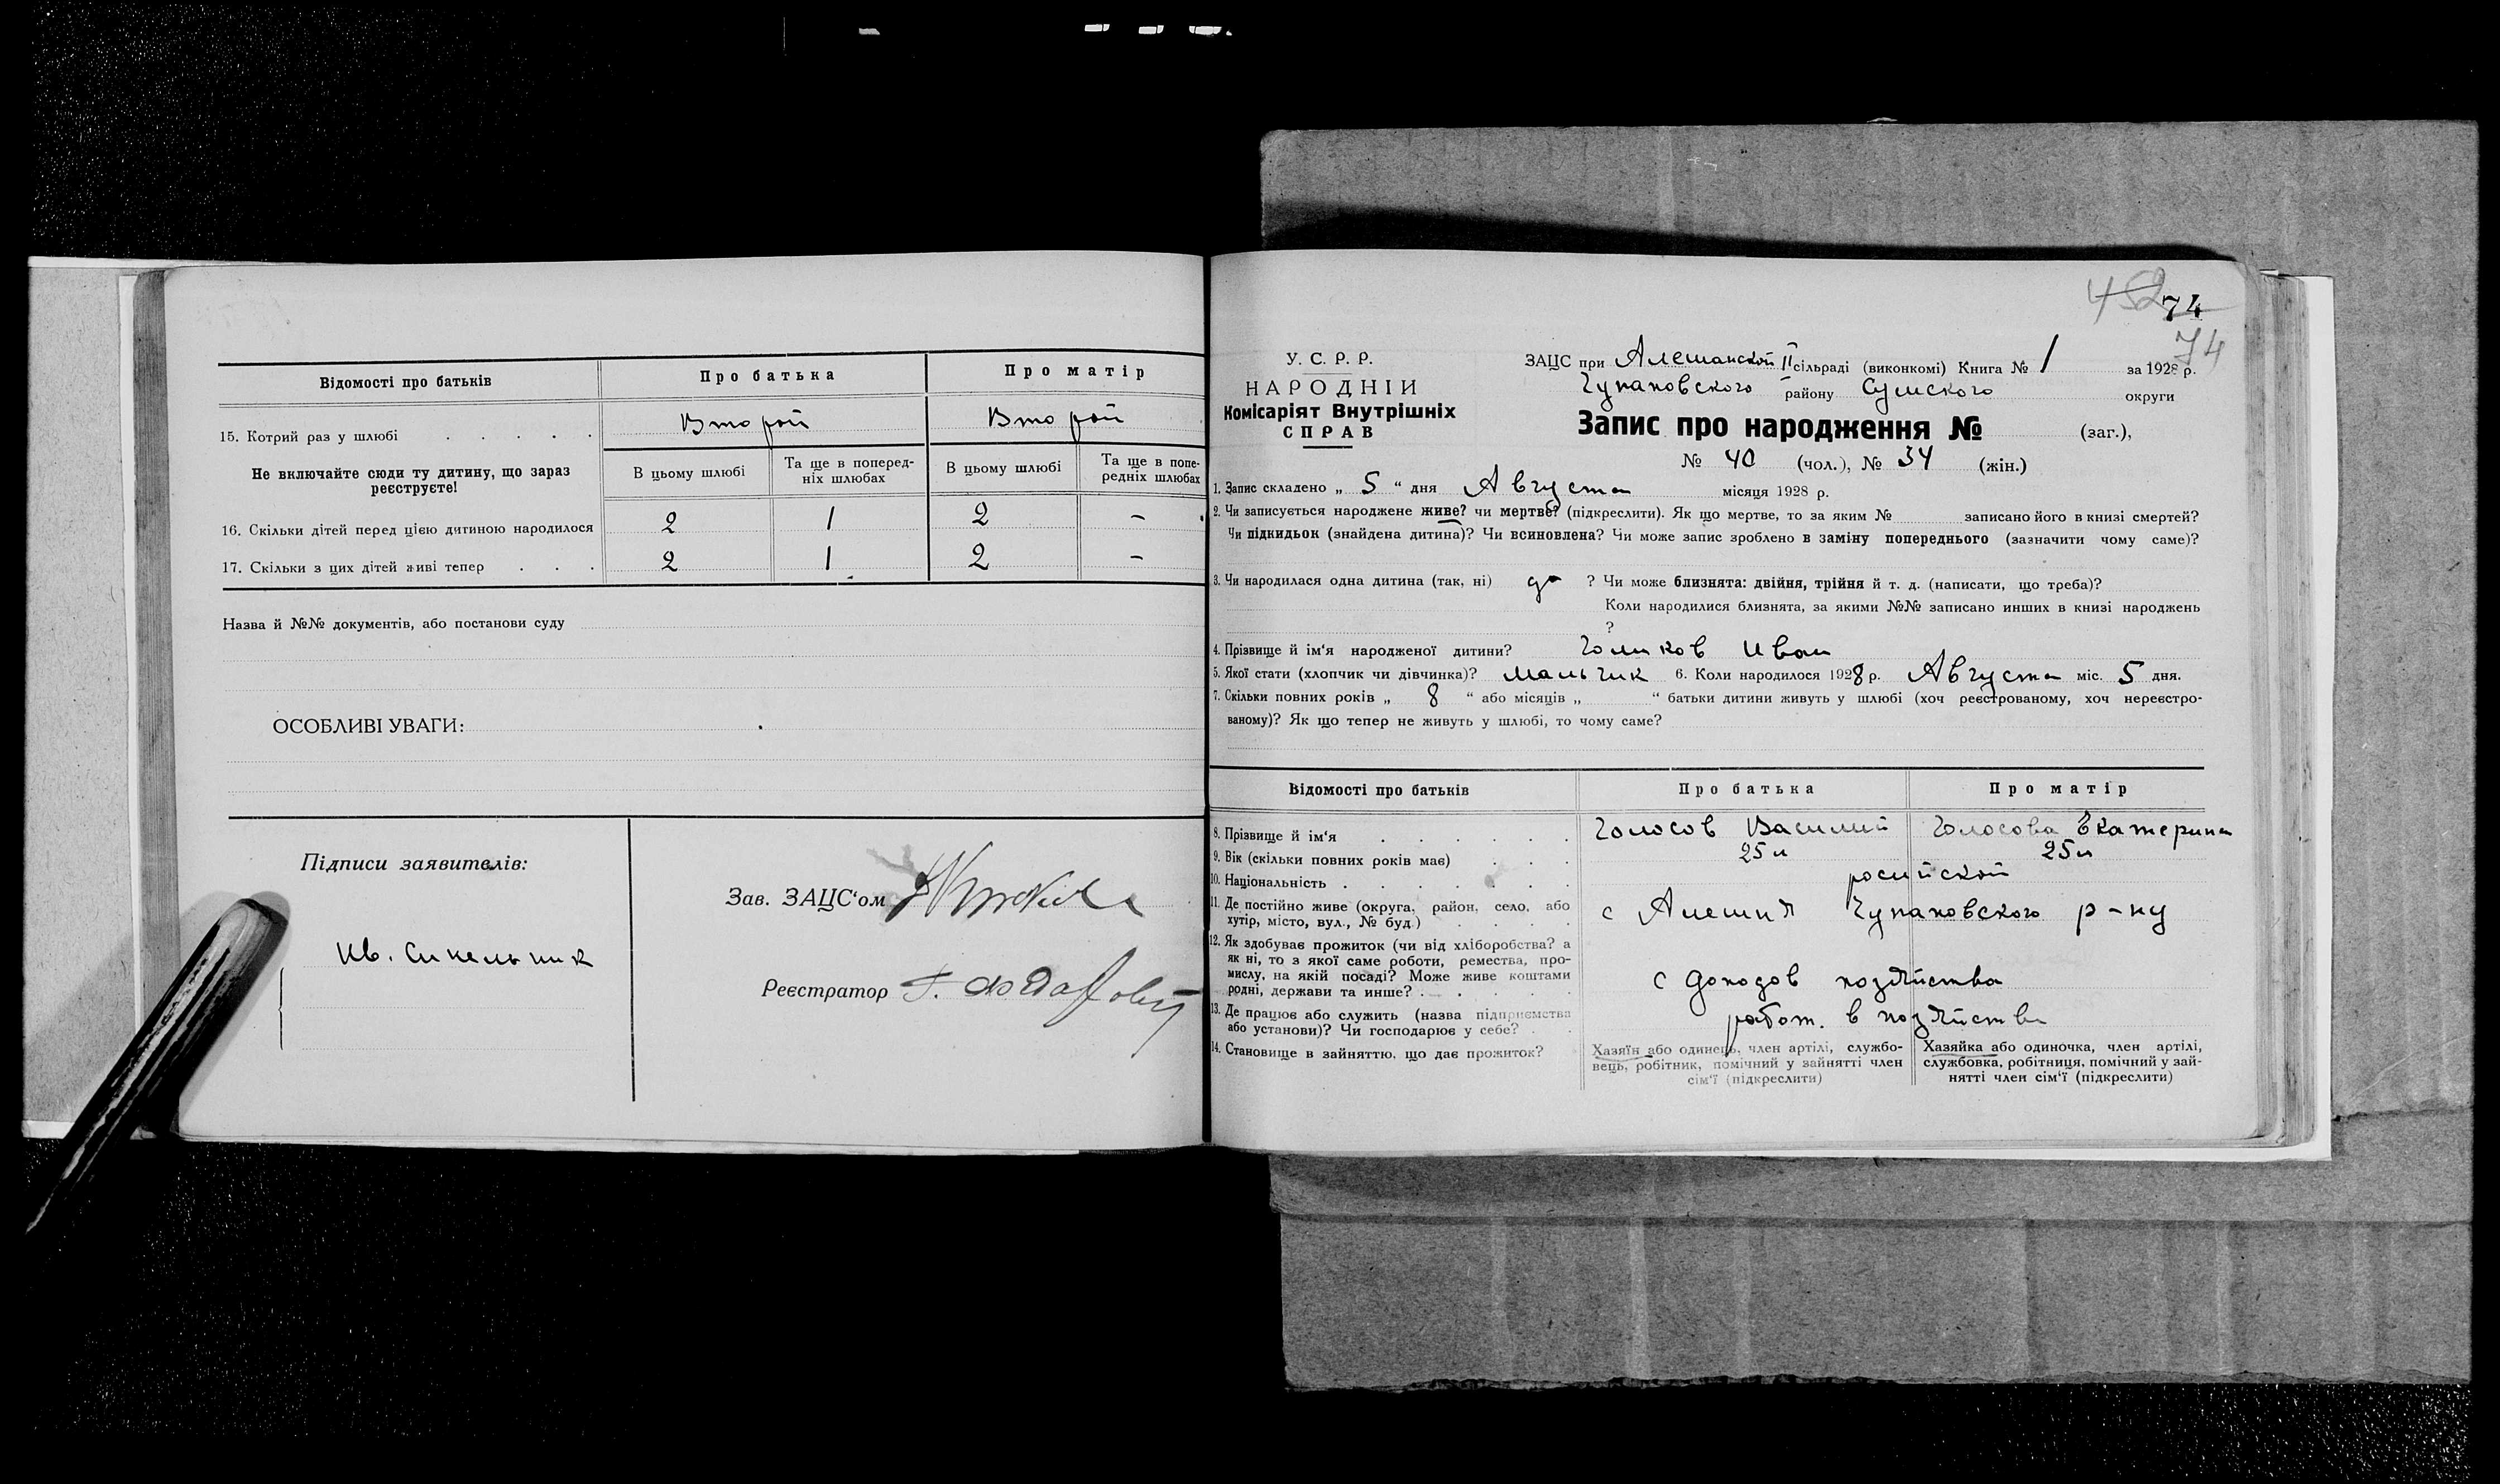 Відомості про батьків
Про батька
Про матір
15. Котрий раз у шлюбі . . . . .
Второй
Второй
Не включайте сюди ту дитину, що зараз
реєструєте!
В цьому шлюбі
Та ще в поперед-
ніх шлюбах
В цьому шлюбі
Та ще в попе-
редніх шлюбах
16. Скільки дітей перед цією дитиною народилося
2 1 2 –
17. Скільки з цих дітей живі тепер . . .
2 1 2 –
Назва й №№ документів, або постанови суду
ОСОБЛИВІ УВАГИ:
Підписи заявителів:
Ив. Сипельник
Зав. ЗАЦС'ом
Реєстратор
452 74
74
У. С. Р. Р.
НАРОДНІЙ
Комісаріят Внутрішніх
СПРАВ
ЗАЦС при Алешанской II сільраді (виконкомі) Книга № 1 за 1928 р.
Чупаховского району Сумского округи
Запис про народження № (заг.),
№ 40 (чол.), № 34 (жін.)
1. Запис складено „ 5 “ дня Августа місяця 1928 р.
2. Чи записується народжене живе? чи мертве? (підкреслити). Як що мертве, то за яким № записано його в книзі смертей?
Чи підкидьок (знайдена дитина)? Чи всиновлена? Чи може запис зроблено в заміну попереднього (зазначити чому саме)?
3. Чи народилася одна дитина (так, ні) да ? Чи може близнята: двійня, трійня й т. д. (написати, що треба)?
Коли народилися близнята, за якими №№ записано инших в книзі народжень
?
4. Прізвище й ім'я народженої дитини? Голиков Иван
5. Якої стати (хлопчик чи дівчинка)? Мальчик 6. Коли народилося 1928 р. Августа міс. 5 дня.
7. Скільки повних років „ 8 “ або місяців „ “ батьки дитини живуть у шлюбі (хоч реєстрованому, хоч нереєстро-
ваному)? Як що тепер не живуть у шлюбі, то чому саме?
Відомості про батьків
Про батька
Про матір
8. Прізвище й ім'я . . . . . .
Голосов Василий
Голосова Екатерина
9. Вік (скільки повних років має) . . .
25 л
25 л
10. Національність . . . . . . .
росийской
11. Де постійно живе (округа, район, село, або
хутір, місто, вул., № буд.) . . . .
с Алешня Чупаховского р-ну
12. Як здобуває прожиток (чи від хліборобства? а
як ні, то з якої саме роботи, ремества, про-
мислу, на якій посаді? Може живе коштами
родні, держави та инше? . . . . .
с доходов хозяйства
13. Де працює або служить (назва підприємства
або установи)? Чи господарює у себе? . .
работ. в хозяйстве
14. Становище в зайняттю, що дає прожиток?
Хазяїн або одинець, член артілі, службо-
вець, робітник, помічний у зайнятті член
сім'ї (підкреслити)
Хазяйка або одиночка, член артілі,
службовка, робітниця, помічний у зай-
нятті член сім'ї (підкреслити)